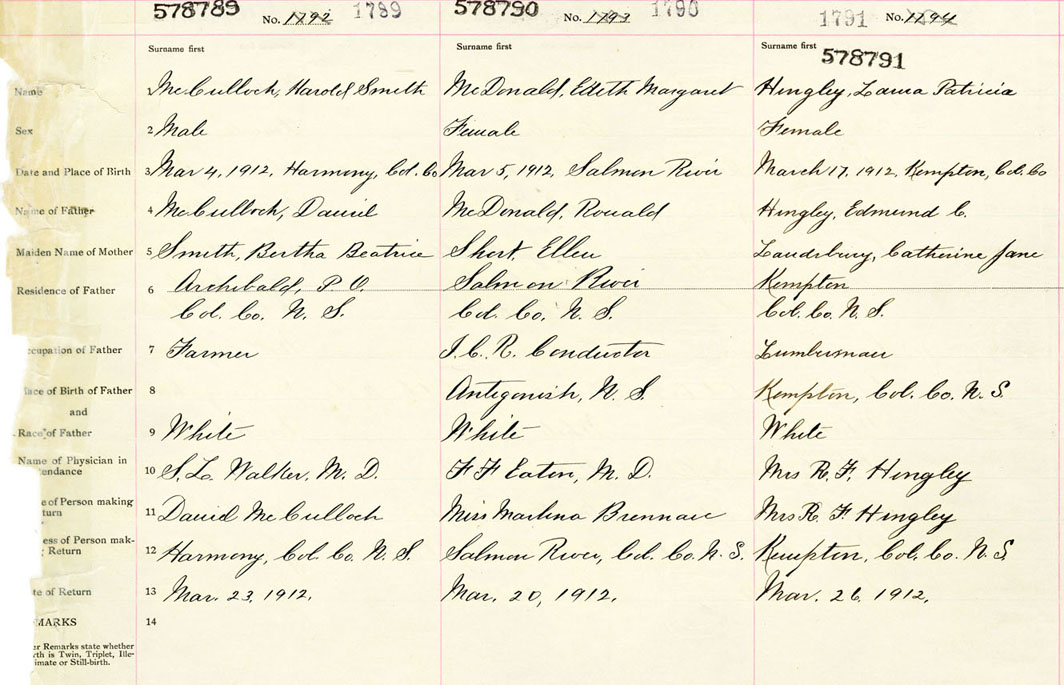 578789 No. 1792 1789 578790 No. 1793 1790 1791 No. 1794
Surname first Surname first Surname first 578791
Name McCulloch, Harold Smith McDonald, Edith Margaret Hingley, Laura Patricia
Sex 2 Male Female Female
Date and Place of Birth 3 Mar 4, 1912, Harmony, Col. Co Mar 5, 1912, Salmon River March 17, 1912, Kempton, Col. Co
Name of Father 4 McCulloch, Daniel McDonald, Ronald Hingley, Edmund C.
Maiden Name of Mother 5 Smith, Bertha Beatrice Short, Ellen Catherine Jane
Residence of Father 6 Archibald, P. O. Salmon River Kempton
Col. Co. N. S. Col. Co. N. S. Col. Co. N. S.
ccupation of Father 7 Farmer I. C. R. Conductor Lumberman
ace of Birth of Father 8 Antigonish, N. S. Kempton, Col. Co. N. S
and
Race of Father 9 White White White
Name of Physician in
endance 10 S. L. Walker, M. D. F F Eaton, M. D. Mrs R. F. Hingley
e of Person making
turn 11 David McCulloch Miss Brennan Mrs R. F Hingley
ess of Person mak-
Return 12 Harmony, Col. Co. N. S. Salmon River, Col. Co. N. S. Kempton, Col. Co. N. S
te of Return 13 Mar. 23, 1912. Mar, 20, 1912. Mar. 26, 1912.
MARKS 14
er Remarks state whether
rth is Twin, Triplet, Ille-
imate or Still-birth.